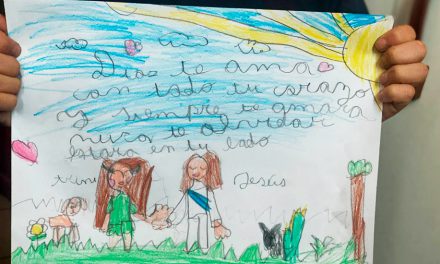 Dios te ama
con todo tu corazo
y siempre te amara
nuca te olvidar
estara en tu lado
Jesús